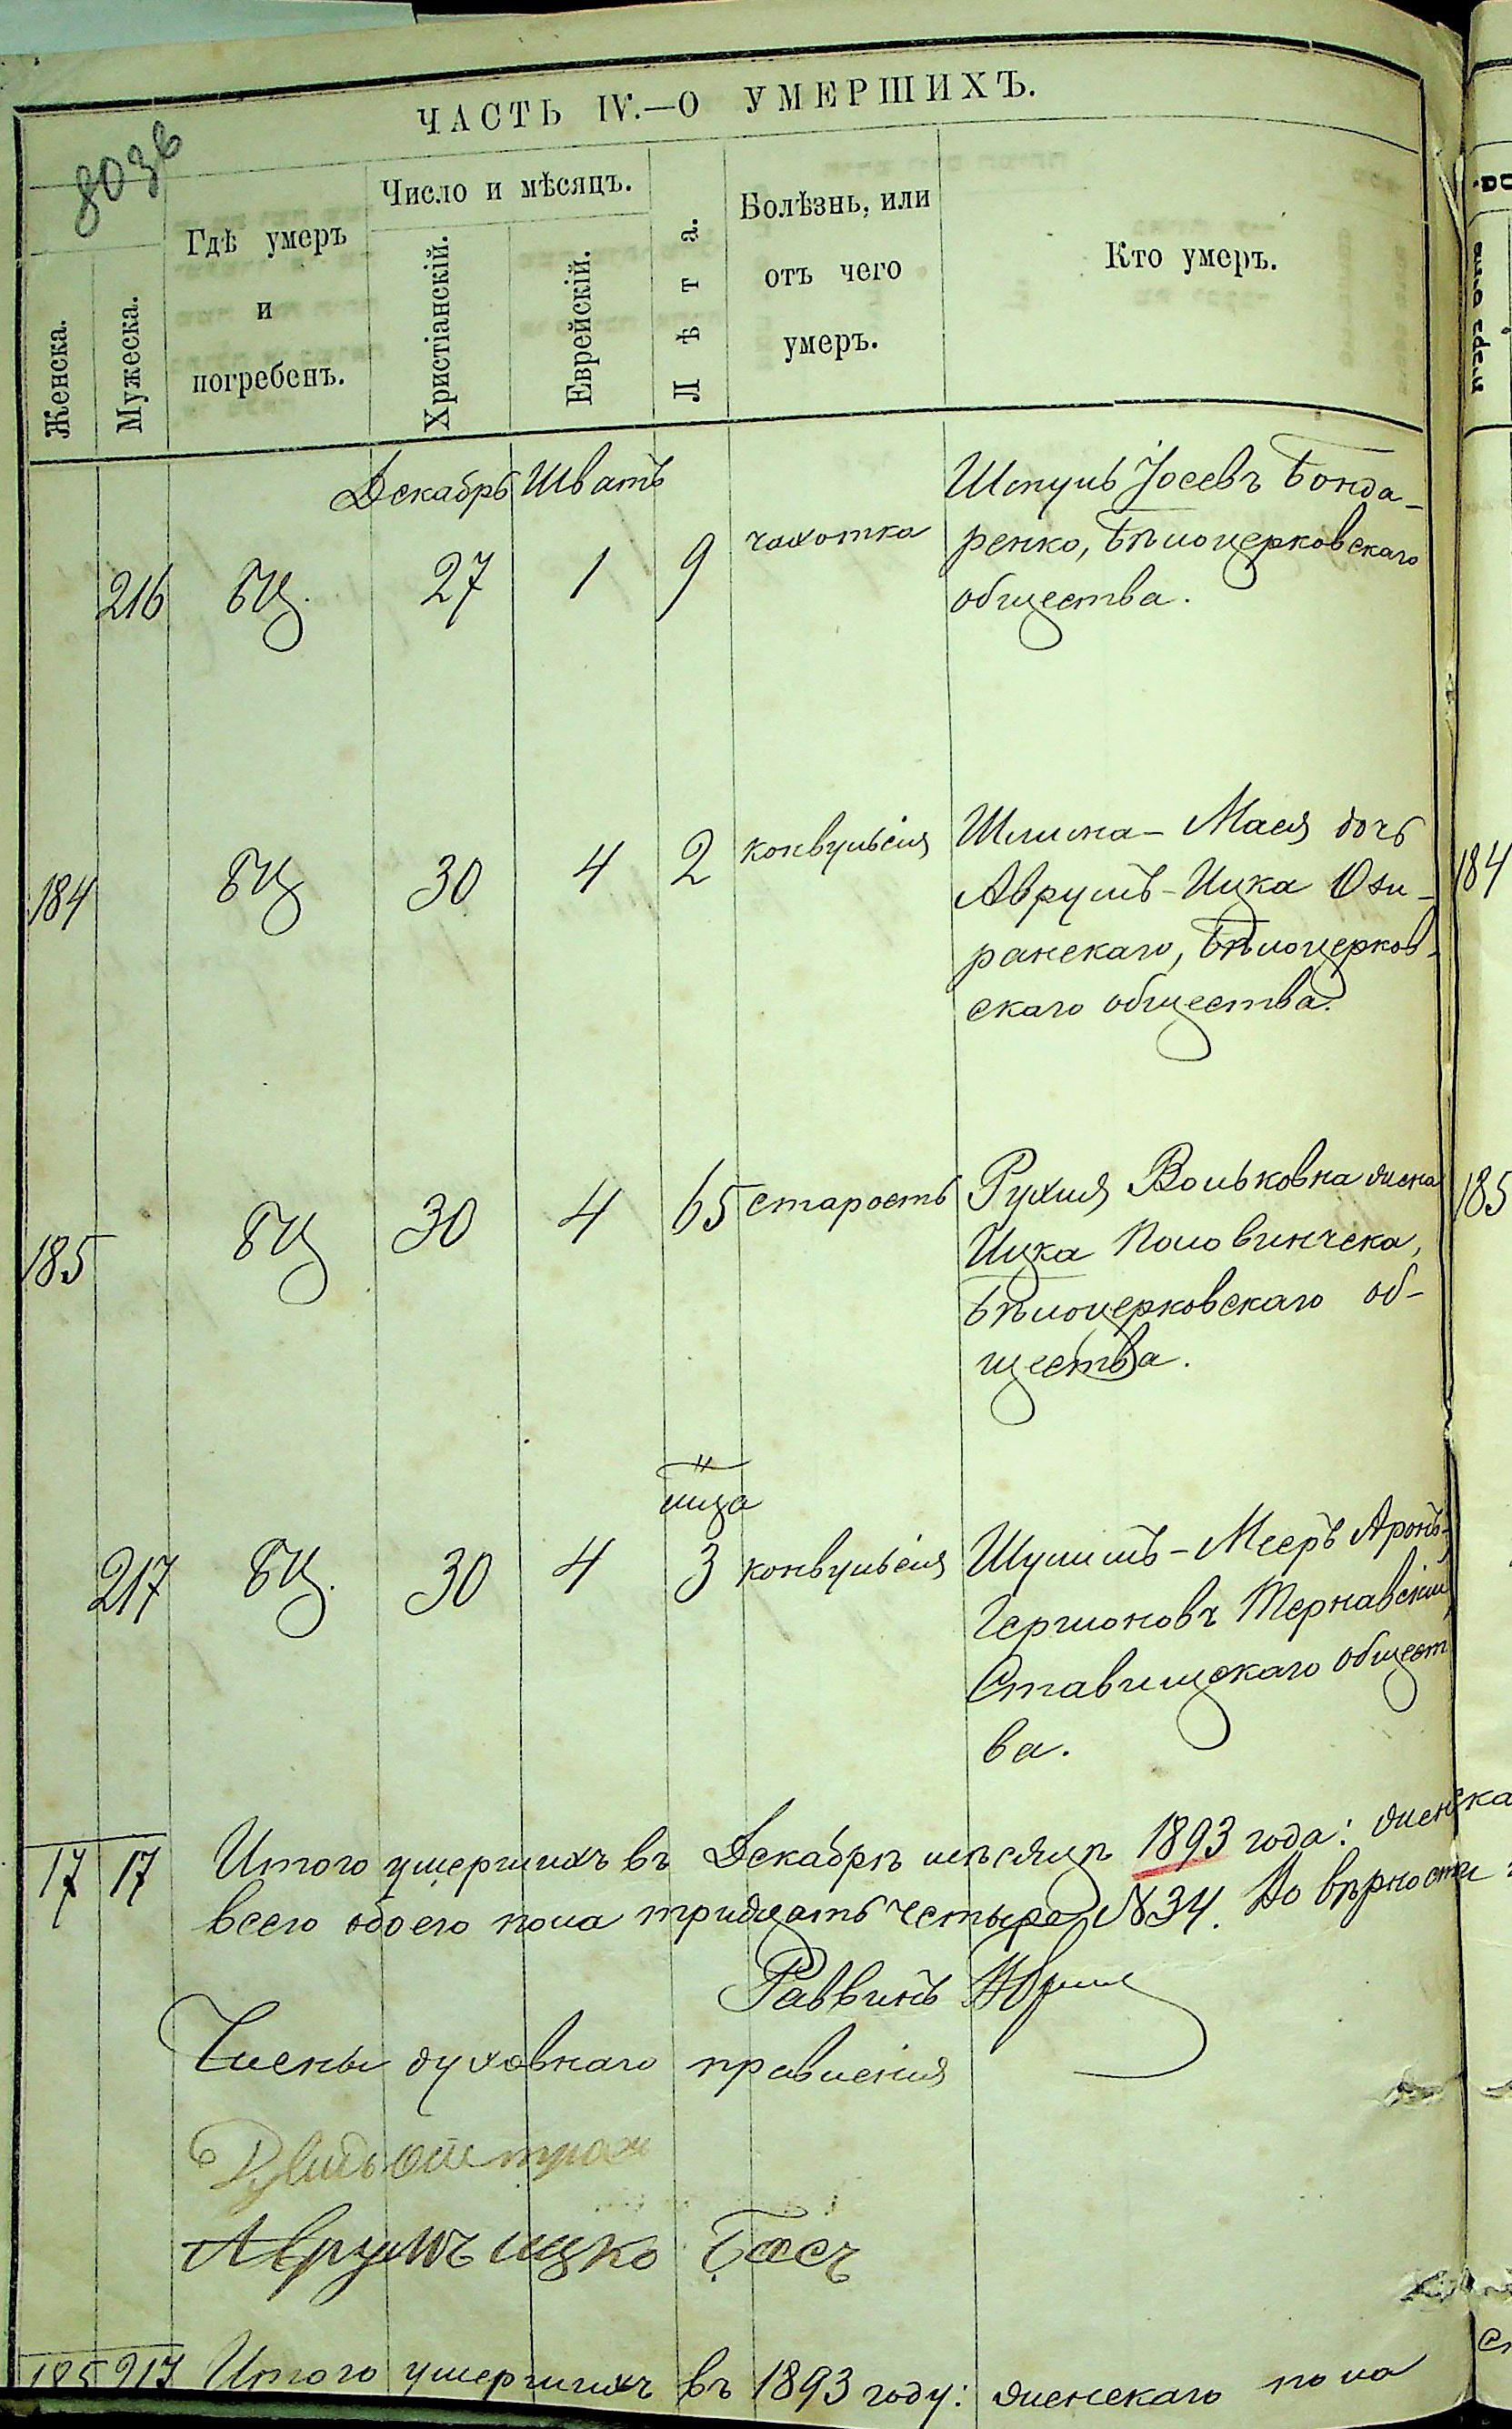 ЧАСТЬ IV.—О УМЕРШИХЪ.
803б
Женска.
Мужеска.
Гдѣ умеръ
и
погребенъ.
Число и мѣсяцъ.
Христіанскій.
Еврейскій.
Лѣта.
Болѣзнь, или
отъ чего
умеръ.
Кто умеръ.
Декабрь Шватъ
216 БЦ. 27 1 9 чахотка
Шмуль Іосевъ Бонда-
ренко, Бѣлоцерковскаго
общества.
184 БЦ 30 4 2 конвульсія
Шлима-Мася дочь
Аврумъ-Ицка Ози-
ранскаго, Бѣлоцерков-
скаго общества.
184
185 БЦ 30 4 65 старость
Рухля Вольковна жена
Ицка Половинчека,
Бѣлоцерковскаго об-
щества.
185
мца
217 БЦ. 30 4 3 конвульсія
Шулимъ-Мееръ Аронъ-
Гершоновъ Тернавскій,
Ставищскаго общест
ва.
17 17 Итого умершихъ въ Декабрѣ мѣсяцѣ 1893 года: женска
всего обоего пола тридцать четыре № 34. Во вѣрности
Раввинъ
Члены духовнаго правленія
Аврумъ Ицко Басъ
185 217 Итого умершихъ въ 1893 году: женскаго пола